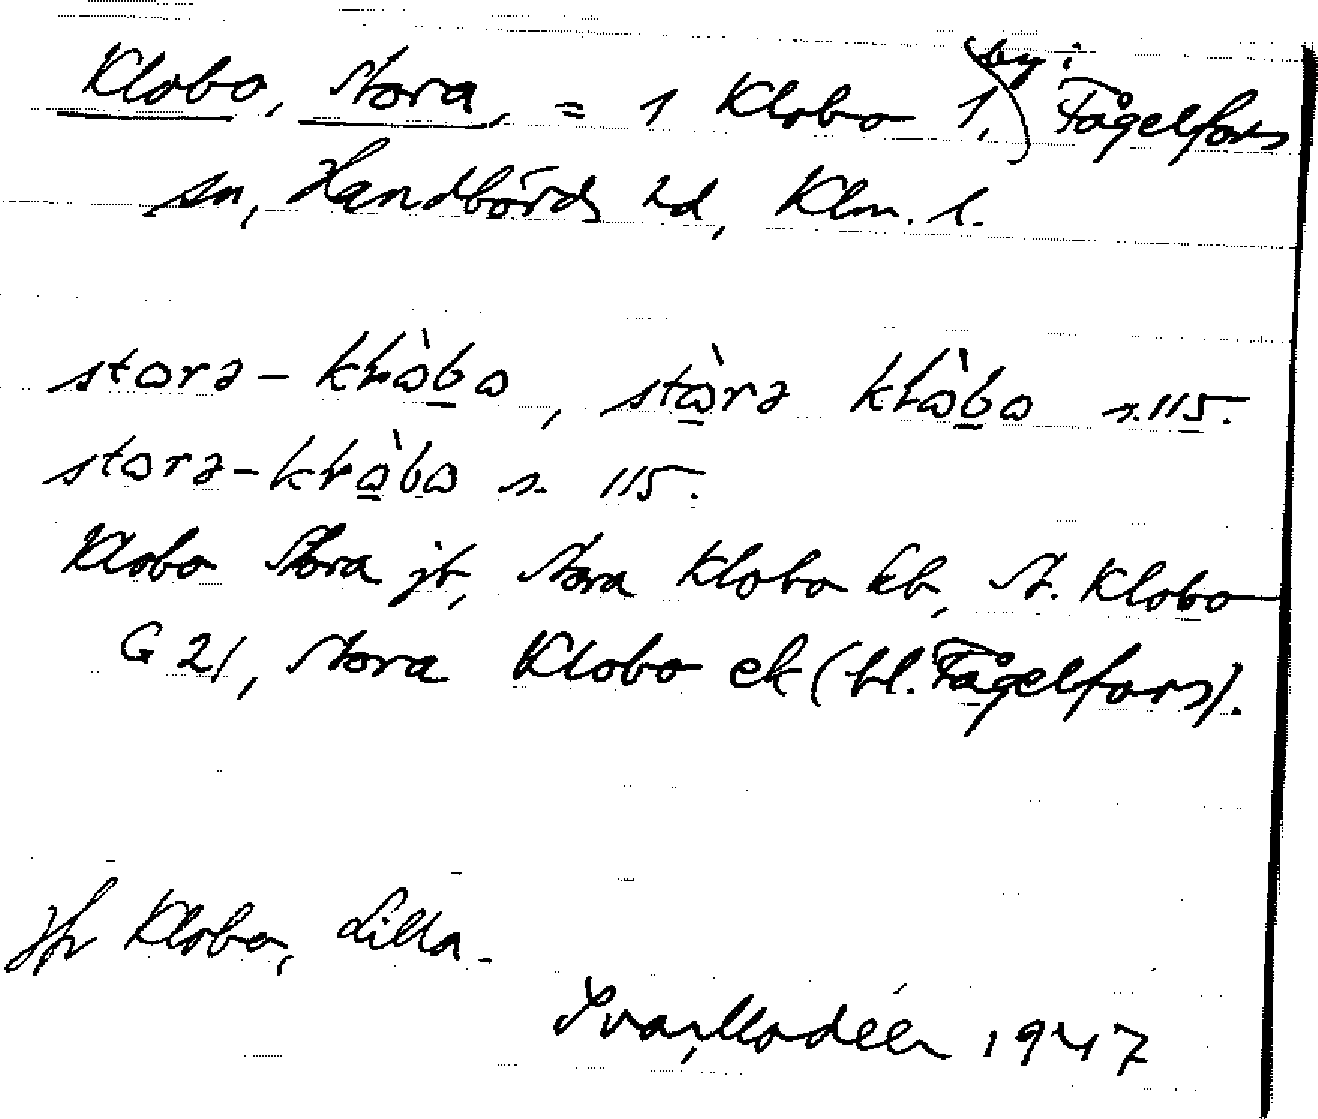 Klobo, Stora, = 1 Klobo 1, by i Fågelfors
sn, Handbörds hd, Klm. l.
storə-kƚòbo, stòrə kƚòbo s. 115.
storə-kƚòbo s. 115.
Klobo Stora jb, Stora Klobo kb, St. Klobo
G 21, Stora Klobo ek (bl. Fågelfors).
Jfr Klobo, Lilla.
Ivar Modéer 1947